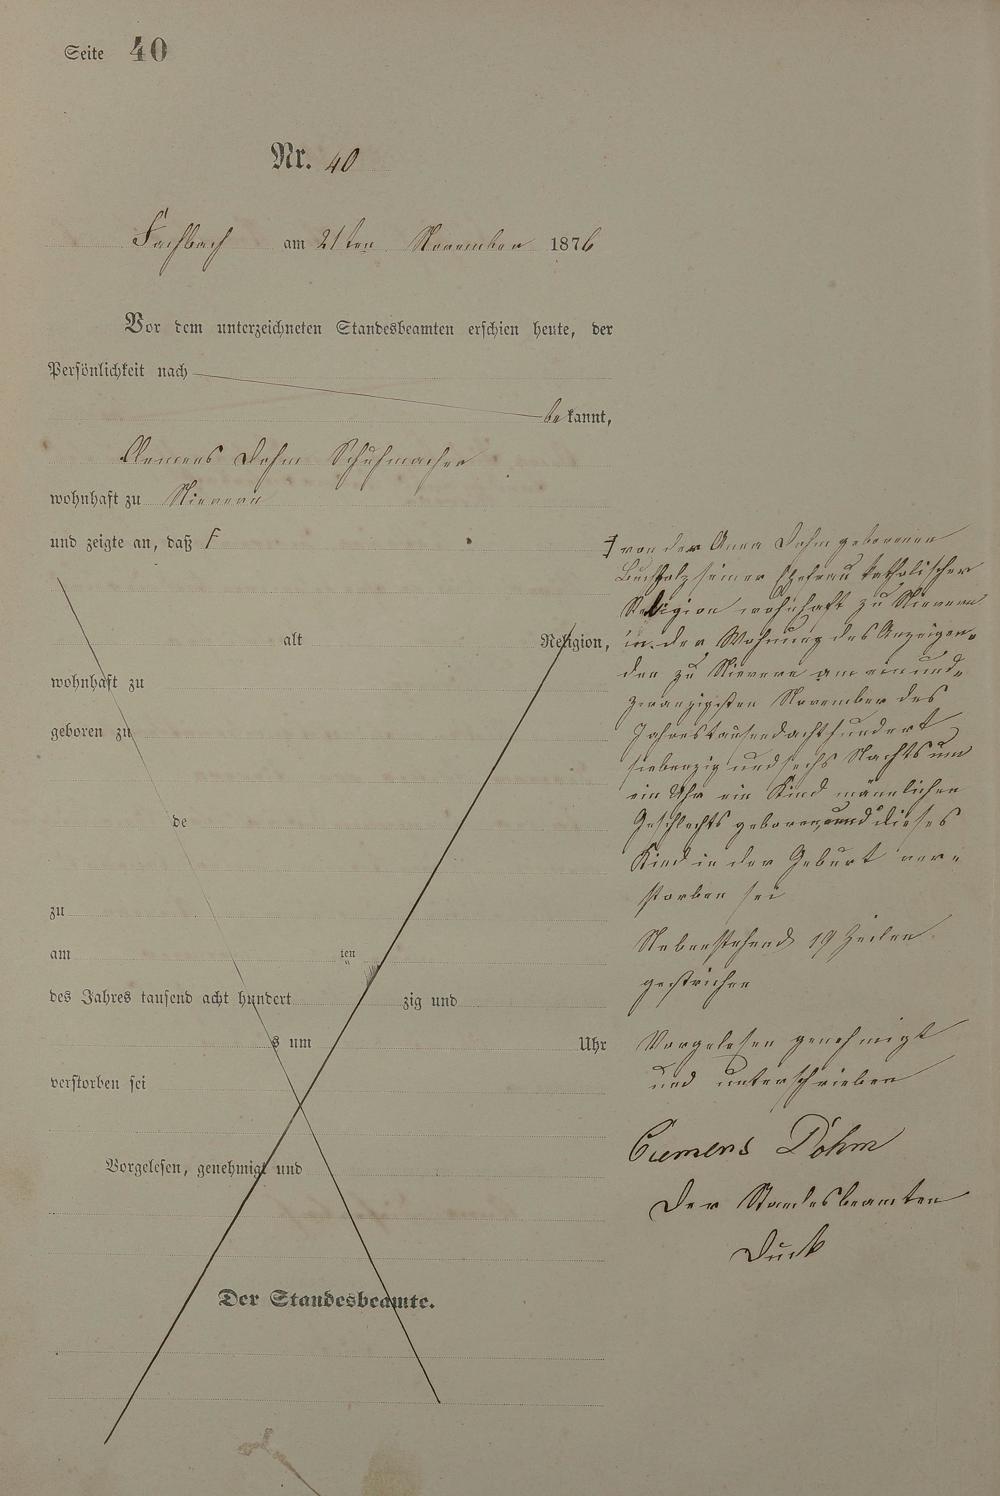 Seite 40
Nr. 40
Fachbach am 21ten November 1876
Vor dem unterzeichneten Standesbeamten erschien heute, der
Persönlichkeit nach
bekannt,
Clemens Dohm Schuhmacher
wohnhaft zu Nievern
und zeigte an, daß F
alt Religion,
wohnhaft zu
geboren zu
de
zu
am ten
des Jahres tausend acht hundert zig und
s um Uhr
verstorben sei
Vorgelesen, genehmigt und
Der Standesbeamte.
F von der Anna Dohm geborenen
Buchholz seiner Ehefrau katholischer
Religion wohnhaft zu Nievern
in der Wohnung des Anzeigen-
den zu Nievern am einund-
zwanzigsten November des
Jahrestausendachthundert
siebenzig und sechs Nachts um
ein Uhr ein Kind männlichen
Geschlechts geboren, und dieses
Kind in der Geburt ver-
storben sei
Nebenstehend 19 Zeilen
gestrichen
Vorgelesen genehmigt
und unterschrieben
Clemens Dohm
Der Standesbeamten